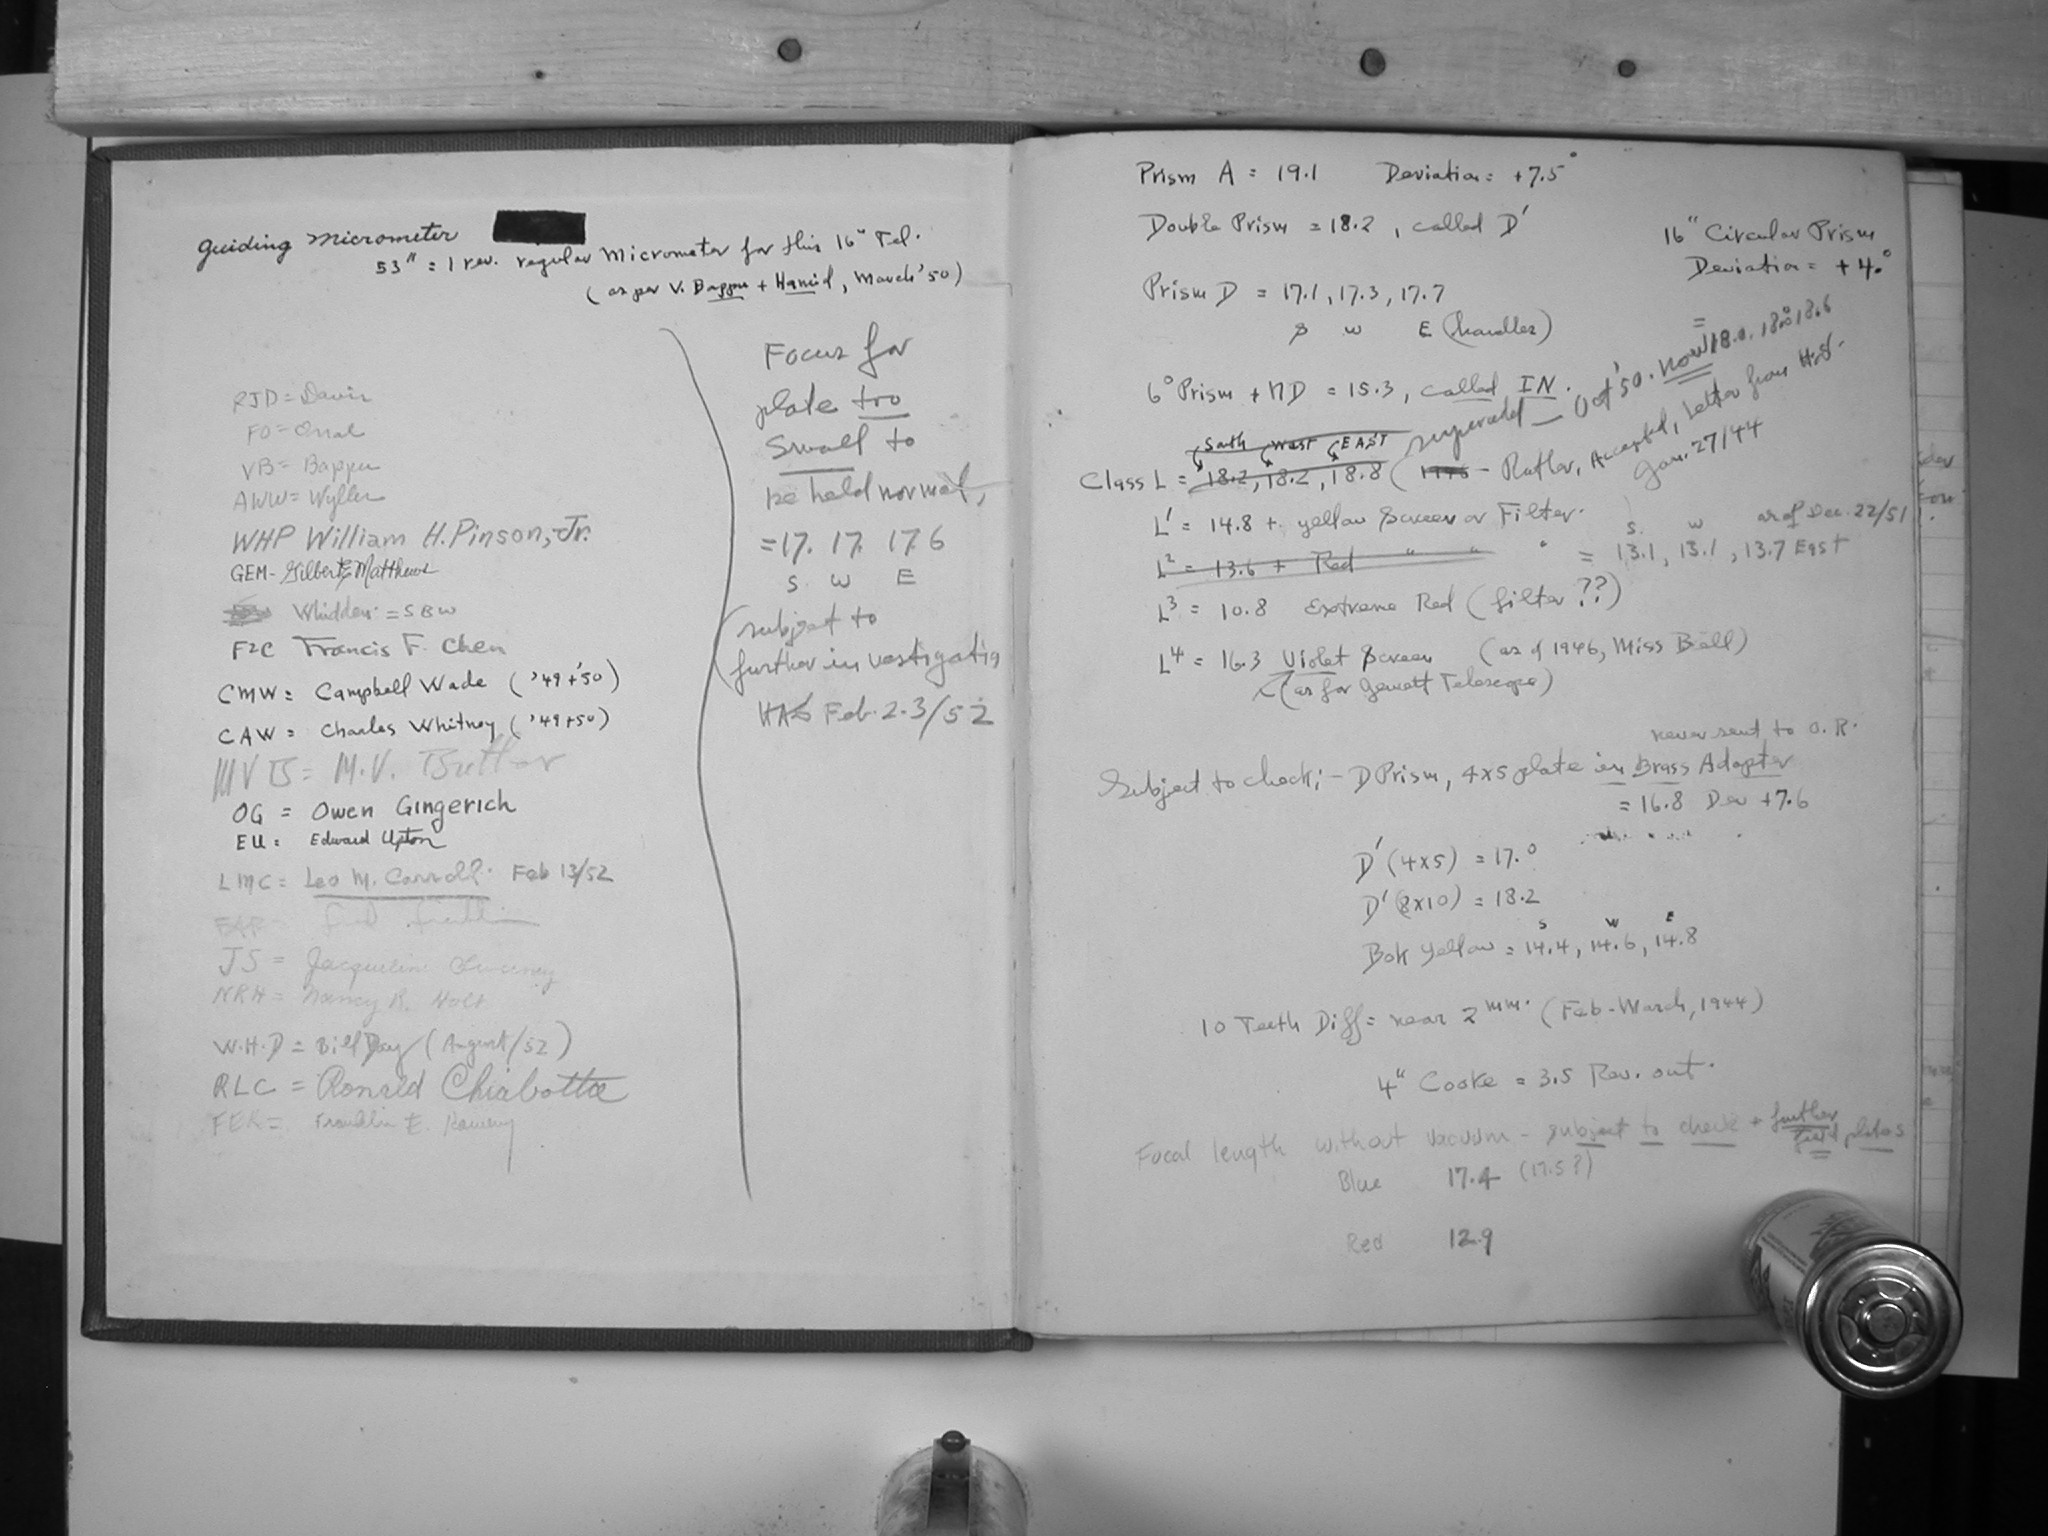 guiding micrometer
53" = 1 rev. regular micrometer for this 16" Tel.
(as per V. Bappu + Hamid, March '50)
RJD = Davis
FO =
VB = Bappu
AWW = Wyller
WHP William H. Pinson, Jr.
GEM - Gilbert E Matthews
Whidden = SBW
Francis F. Chen
CMW = Campbell Wade ('49+'50)
CAW = Charles Whitney ('49+50)
MVB = M.V. Butler
OG = Owen Gingerich
EU = Edward Upton
LMC = Leo M. Carroll. Feb 13/52
JS = Jacquelin Sweeney
NRH = Nancy R. Holt
W.H.D = Bill Day (August/52)
RLC = Ronald Chiabotta
FER = Franklin E.
Focus for
plate too
Small to
be held normal,
=17. 17. 17.6
S. W E
(subject to
further investigatin
HAS Feb. 2-3/52
Prism A = 19.1 Deviation = +7.5°
Double Prism = 18.2, called D'
16" Circular Prism
Deviation = +4.°
Prism D = 17.1, 17.3, 17.7
S W E (handler)
6° Prism + ND = 15.3, called IN.
superseded - Oct '50. now = 18.0, 18.0 18.6
South West EAST
Class L = 18.2, 18.2, 18.8 ( 1946 - Rutlar, Accepted, Letter from H.S.
Jan. 27/44
L' = 14.8 + yellow Screen or Filter.
S. W as of Dec. 22/51
L² = 13.6 + Red " " " = 13.1, 13.1, 13.7 East
L³ = 10.8 Extreme Red (filter ??)
L⁴ = 16.3 Violet Screen (as of 1946, Miss Bell)
(as for Jewett Telescope)
never sent to O.R.
Subject to check; - D Prism, 4x5 plate in Brass Adapter
= 16.8 Dev +7.6
D' (4x5) = 17.0
D' (8x10) = 18.2
S W E
Bok Yellow = 14.4, 14.6, 14.8
10 Teeth Diff = near 2 mm. (Feb-March, 1944)
4" Cooke = 3.5 Rev. out.
Focal length without vacuum - subject to check + further
field plates
Blue 17.4 (17.5?)
Red 12.9